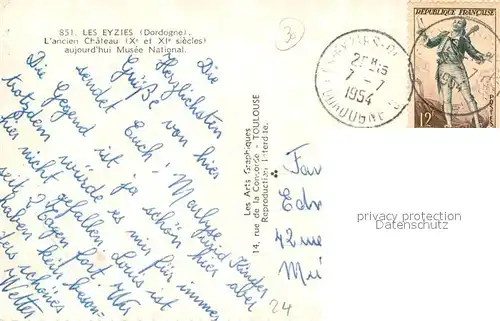 851. LES EYZIES (Dordogne).
L'ancien Château (Xᵉ et XIᵉ siècles)
aujourd'hui Musée National.
Die
Herzlichsten
Grüße von hier
sendet Euch! Marlyse
und Kinder
Die Gegend ist ja schön hier aber
trotzdem würde es mir für immer
hier nicht gefallen. Louis ist
seit 2 Tagen fort. Wir
haben kein beson-
ders schönes
Wetter
Les Arts Graphiques
14, rue de la Concorde - TOULOUSE
Reproduction Interdite.
Fam
Edm
42 rue
Mü
24
30
LES EYZIES
7-7
1954
DORDOGNE
RÉPUBLIQUE FRANÇAISE
12F
1954
privacy protection watermark